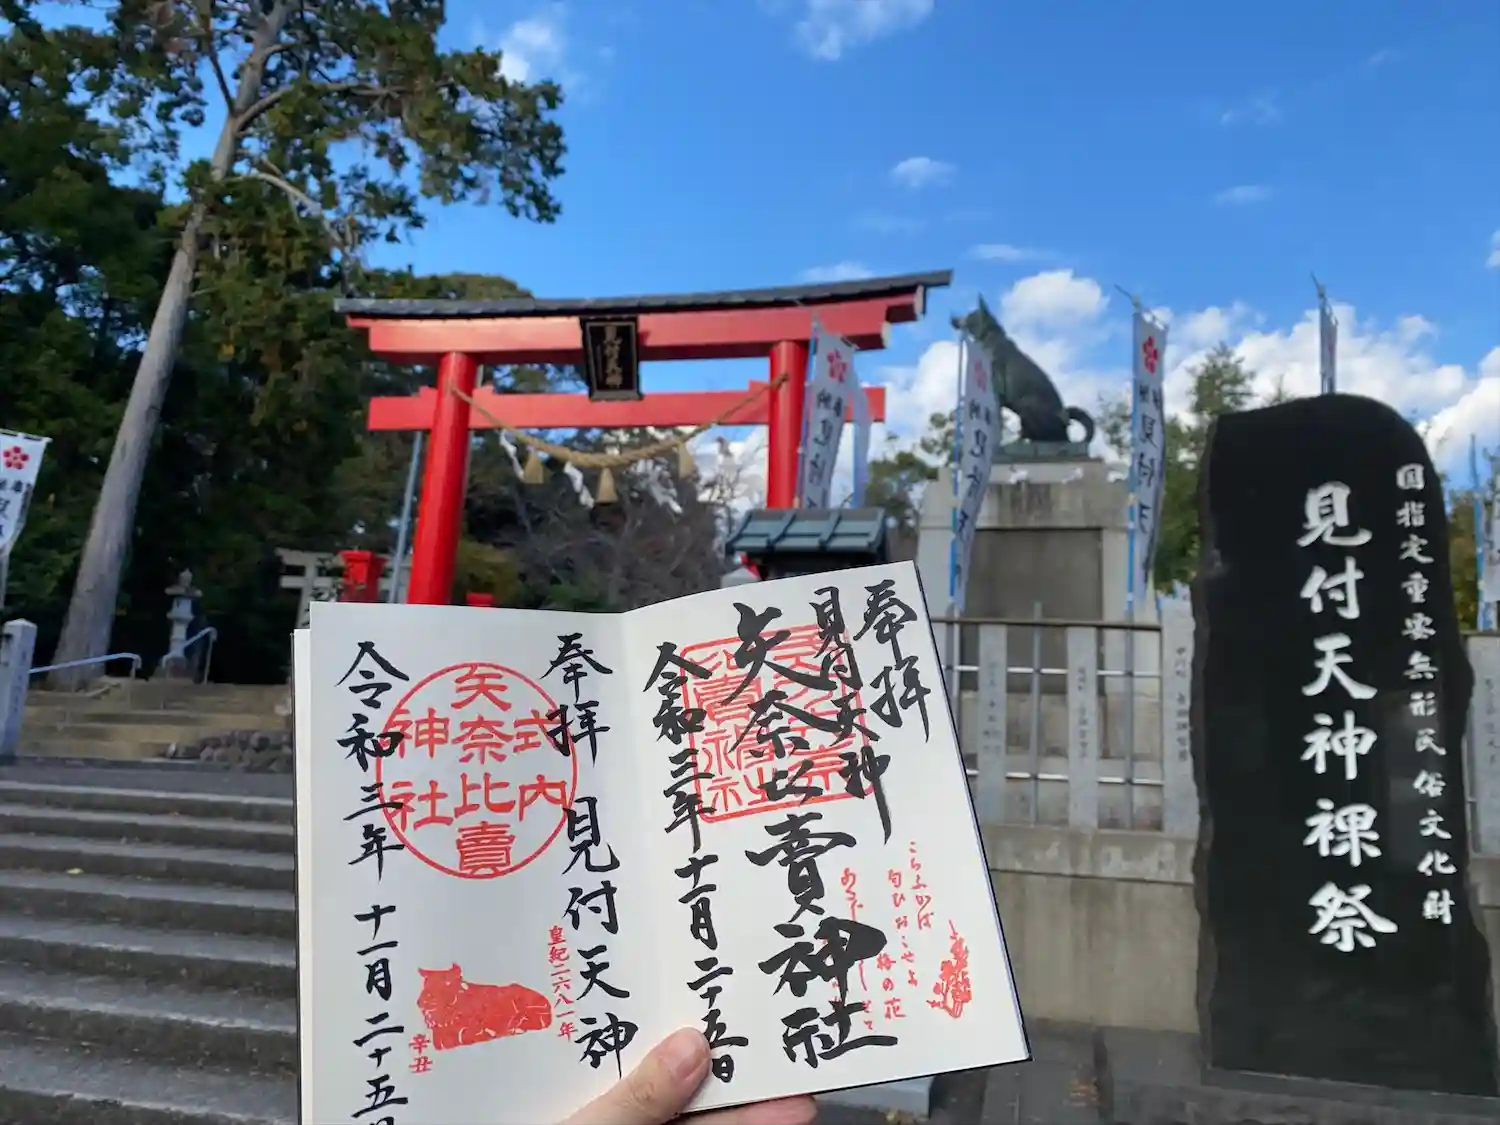 奉拝
見付天神
矢奈比賣神社
令和三年十一月二十五日
こちふかば
匂ひおこせよ
梅の花
奉拝
見付天神
式内
矢奈比賣
神社
皇紀二六八一年
辛丑
令和三年
十一月二十五日
国指定重要無形民俗文化財
見付天神裸祭
見付天神
見付天